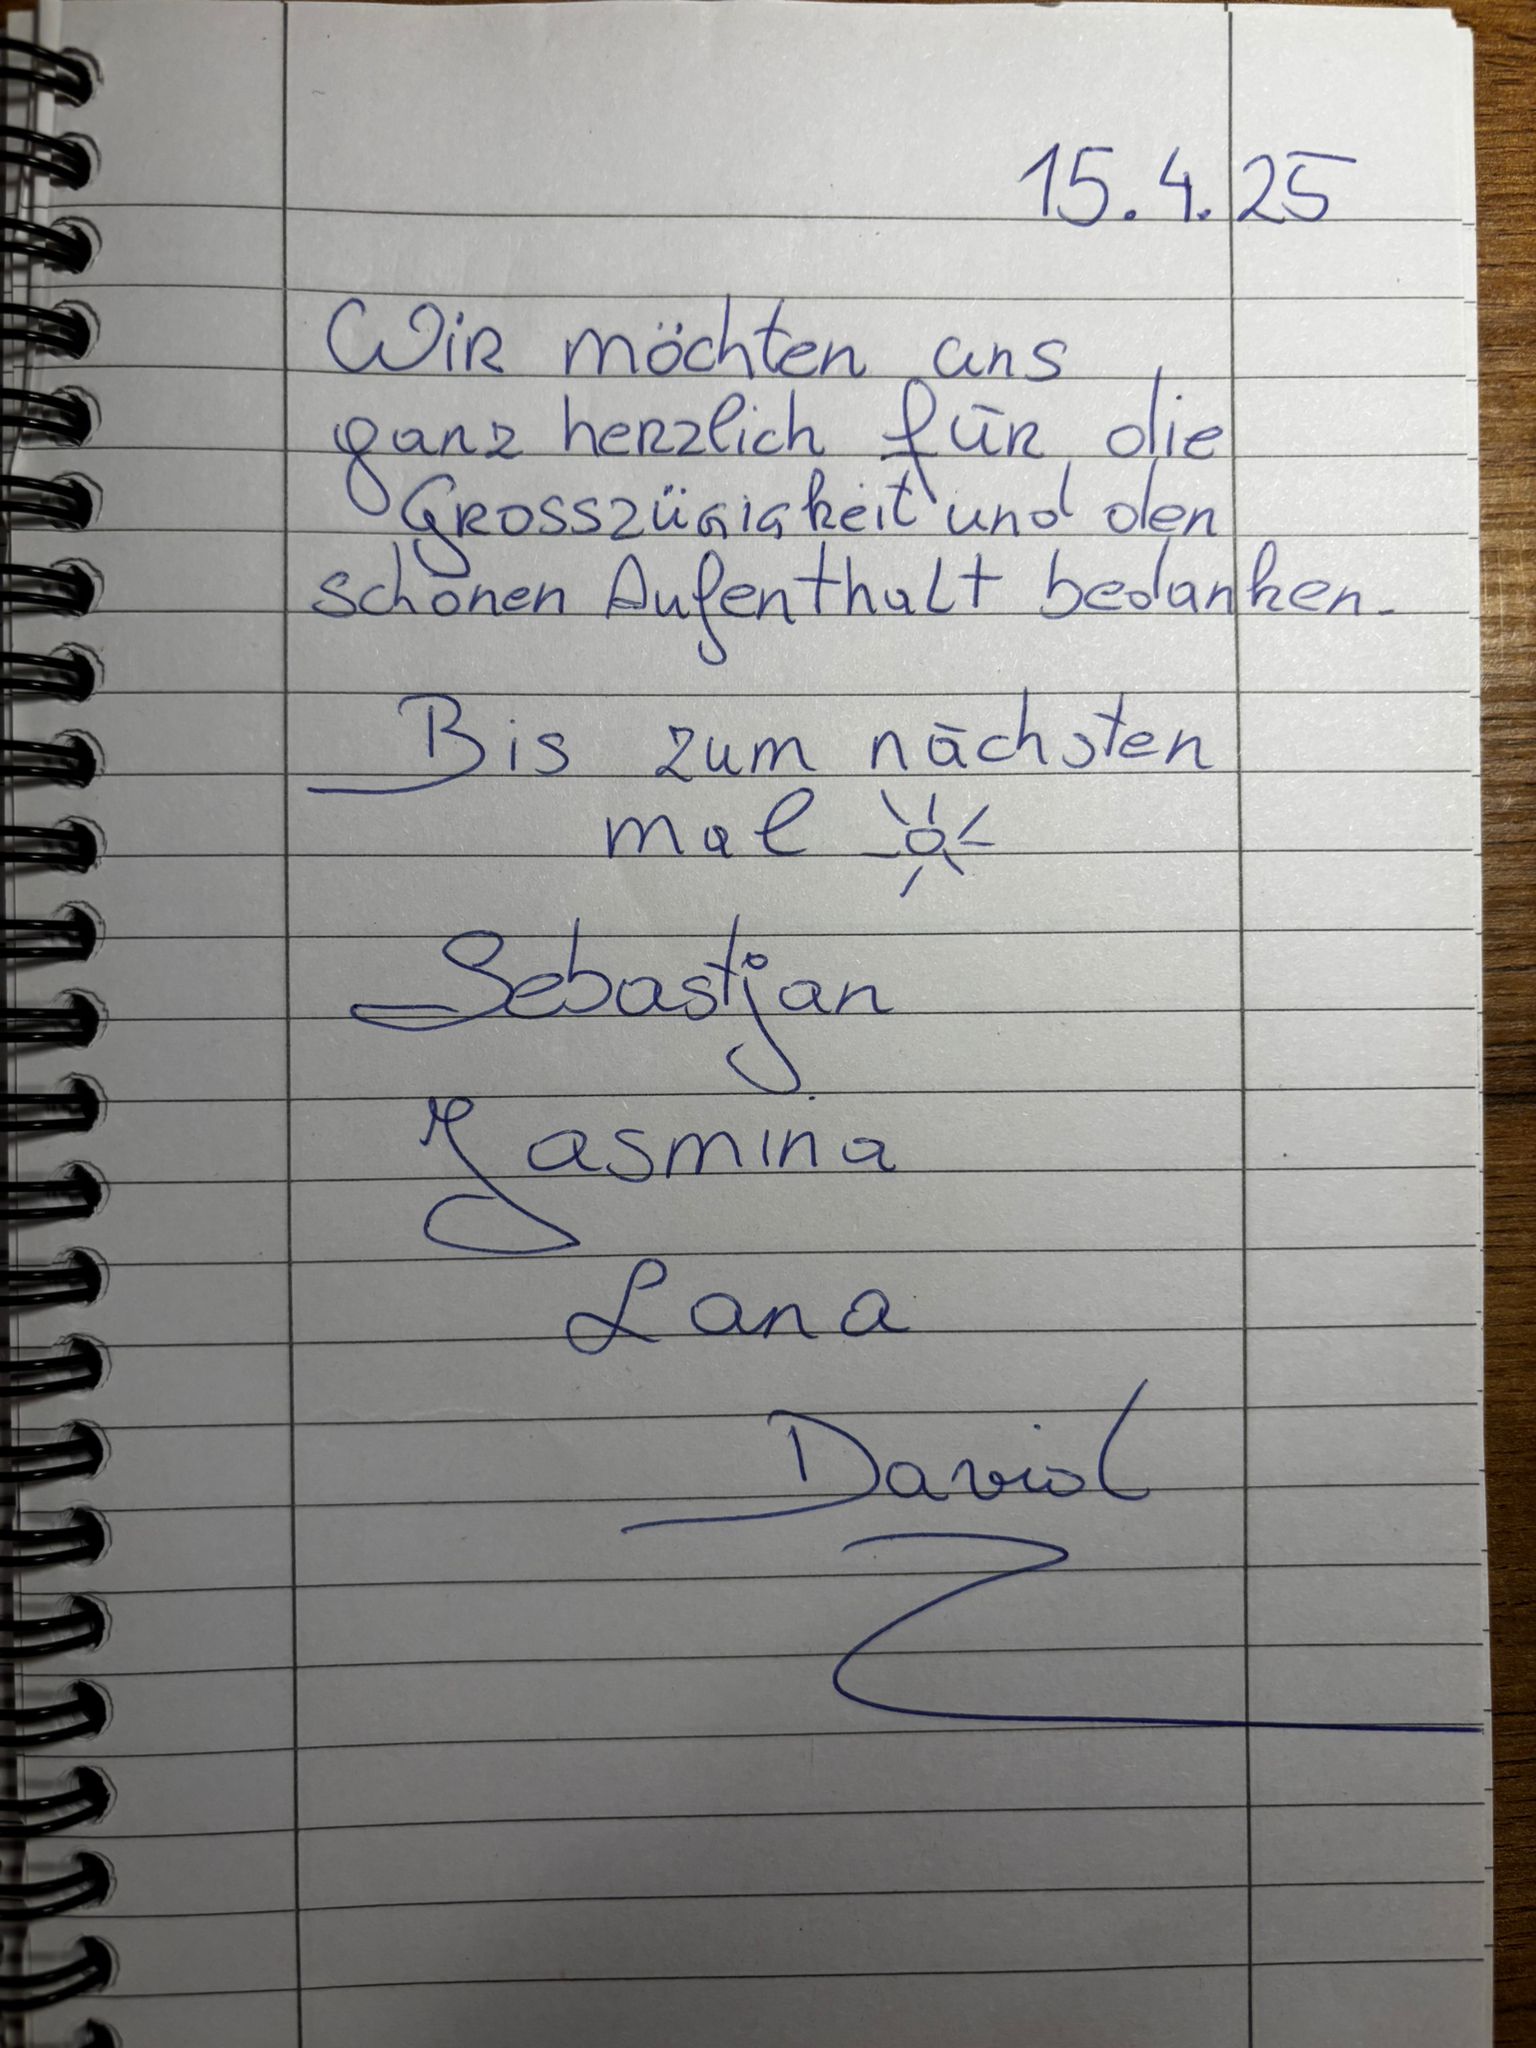 15.4.25
Wir möchten uns
ganz herzlich für die
Grosszügigkeit und den
schönen Aufenthalt bedanken.
Bis zum nächsten
mal
Sebastjan
Jasmina
Lana
David